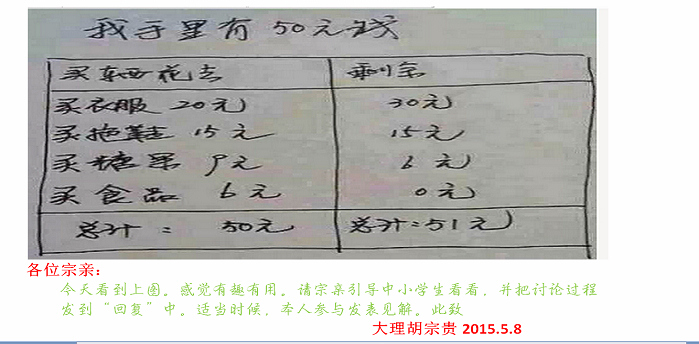 我手里有50元钱
买东西花去 剩余
买衣服 20元 30元
买拖鞋 15元 15元
买糖果 9元 6元
买食品 6元 0元
总计： 50元 总计:51元
各位宗亲：
今天看到上图。感觉有趣有用。请宗亲引导中小学生看看，并把讨论过程
发到“回复”中。适当时候，本人参与发表见解。此致
大理胡宗贵 2015.5.8